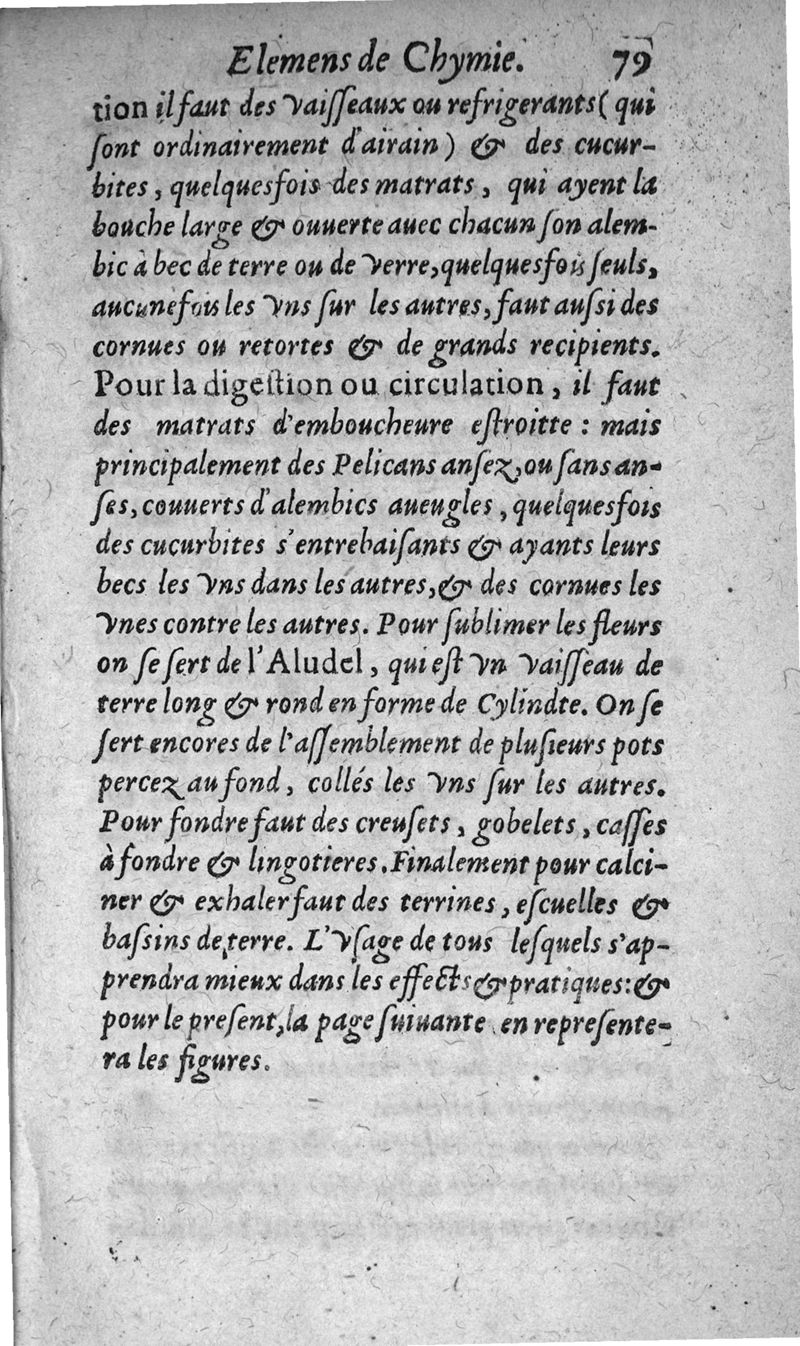 Elemens de Chymie. 79
tion il faut des vaiſſeaux ou refrigerants ( qui
ſont ordinairement d'airain ) & des cucur-
bites, quelquesfois des matrats, qui ayent la
bouche large & ouuerte auec chacun ſon alem-
bic à bec de terre ou de verre, quelquesfois ſeuls,
aucunefois les vns ſur les autres, faut auſsi des
cornues ou retortes & de grands recipients.
Pour la digeſtion ou circulation, il faut
des matrats d'emboucheure eſtroitte : mais
principalement des Pelicans anſez, ou ſans an-
ſes, couuerts d'alembics aueugles, quelquesfois
des cucurbites s'entrebaiſants & ayants leurs
becs les vns dans les autres, & des cornues les
vnes contre les autres. Pour ſublimer les fleurs
on ſe ſert de l'Aludel, qui eſt vn vaiſſeau de
terre long & rond en forme de Cylindte. On ſe
ſert encores de l'aſſemblement de pluſieurs pots
percez au fond, collés les vns ſur les autres.
Pour fondre faut des creuſets, gobelets, caſſes
à fondre & lingotieres. Finalement pour calci-
ner & exhaler faut des terrines, eſcuelles &
baſsins de terre. L'vſage de tous leſquels s'ap-
prendra mieux dans les effects & pratiques: &
pour le preſent, la page ſuiuante en repreſente-
ra les figures.